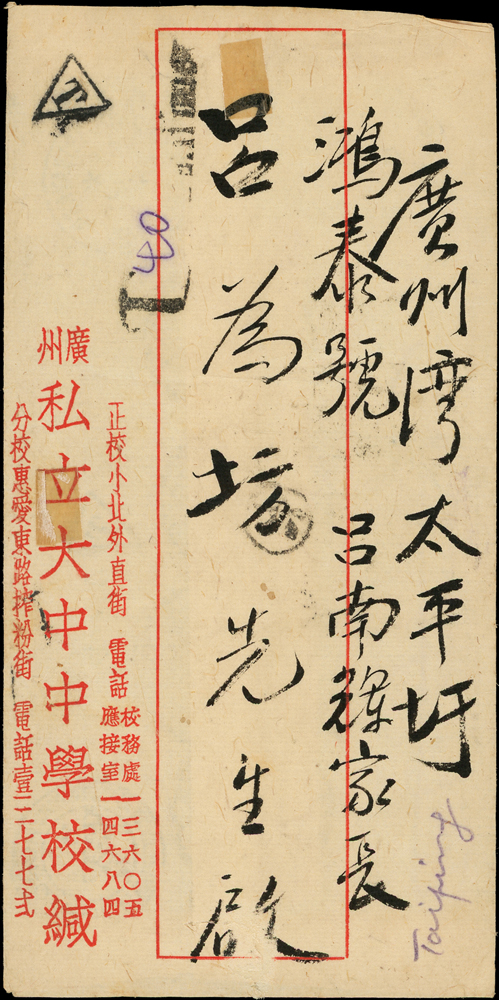 廣州湾太平圩
鴻泰號 呂南鏴家長
呂為坊先生啟
Taiping
正校小北外直街 電話 校務處一三六〇五
應接室一四六八四
廣州
私立大中中學校緘
分校惠愛東路搾粉街 電話壹二七七弍